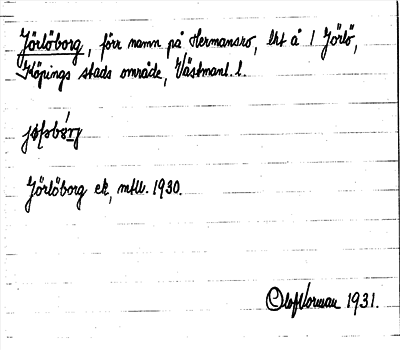 Jörlöborg, förr namn på Hermansro, lht å 1 Jörlö,
Köpings stads område, Västmanl. l.
Jörlöborg ek, mtbl. 1930.
Olof Norman 1931.